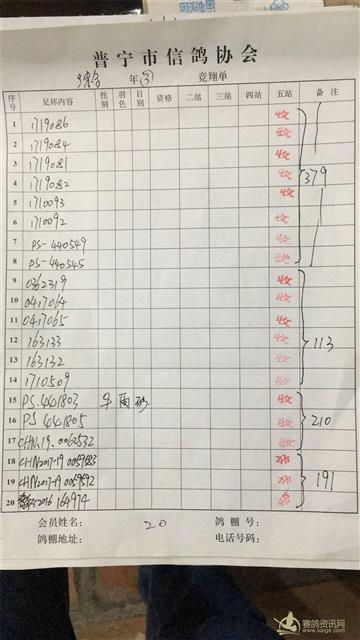 普宁市信鸽协会
综合 年 ③ 竞翔单
序号 足环内容 性别 羽色 目别 资格 二站 三站 四站 五站 备注
1 1719086 收
2 1719084 收
3 1719081 收
4 1719082 收 379
5 1710093 收
6 1710092 收
7 PS-440549 收
8 PS-440545 收
9 0362319 收
10 0417064 收
11 0417065 收
12 163133 收 113
13 163132 收
14 1710509 收
15 PS.441803 收
16 PS 441805 收 210
17 CHN.19.0062532 收
18 CHN2017-19 0059583
19 CHN2017-19 0059592 收 191
20 2016 164974
会员姓名: 20 鸽棚号:
鸽棚地址: 电话号码:
赛鸽资讯网
www.saige.com